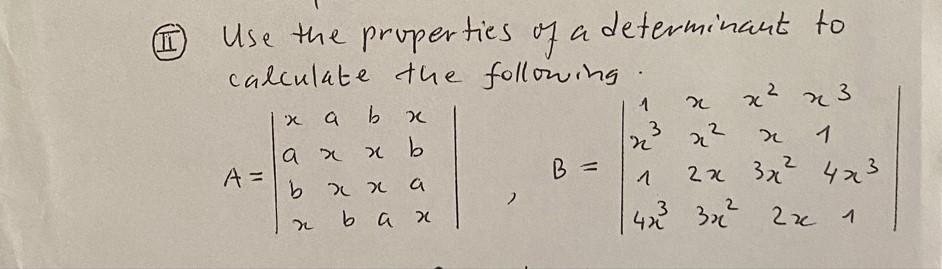 II Use the properties of a determinant to
calculate the following.
A = | x a b x |
| a x x b |
| b x x a |
| x b a x | ,
B = | 1 x x² x³ |
| x³ x² x 1 |
| 1 2x 3x² 4x³ |
| 4x³ 3x² 2x 1 |